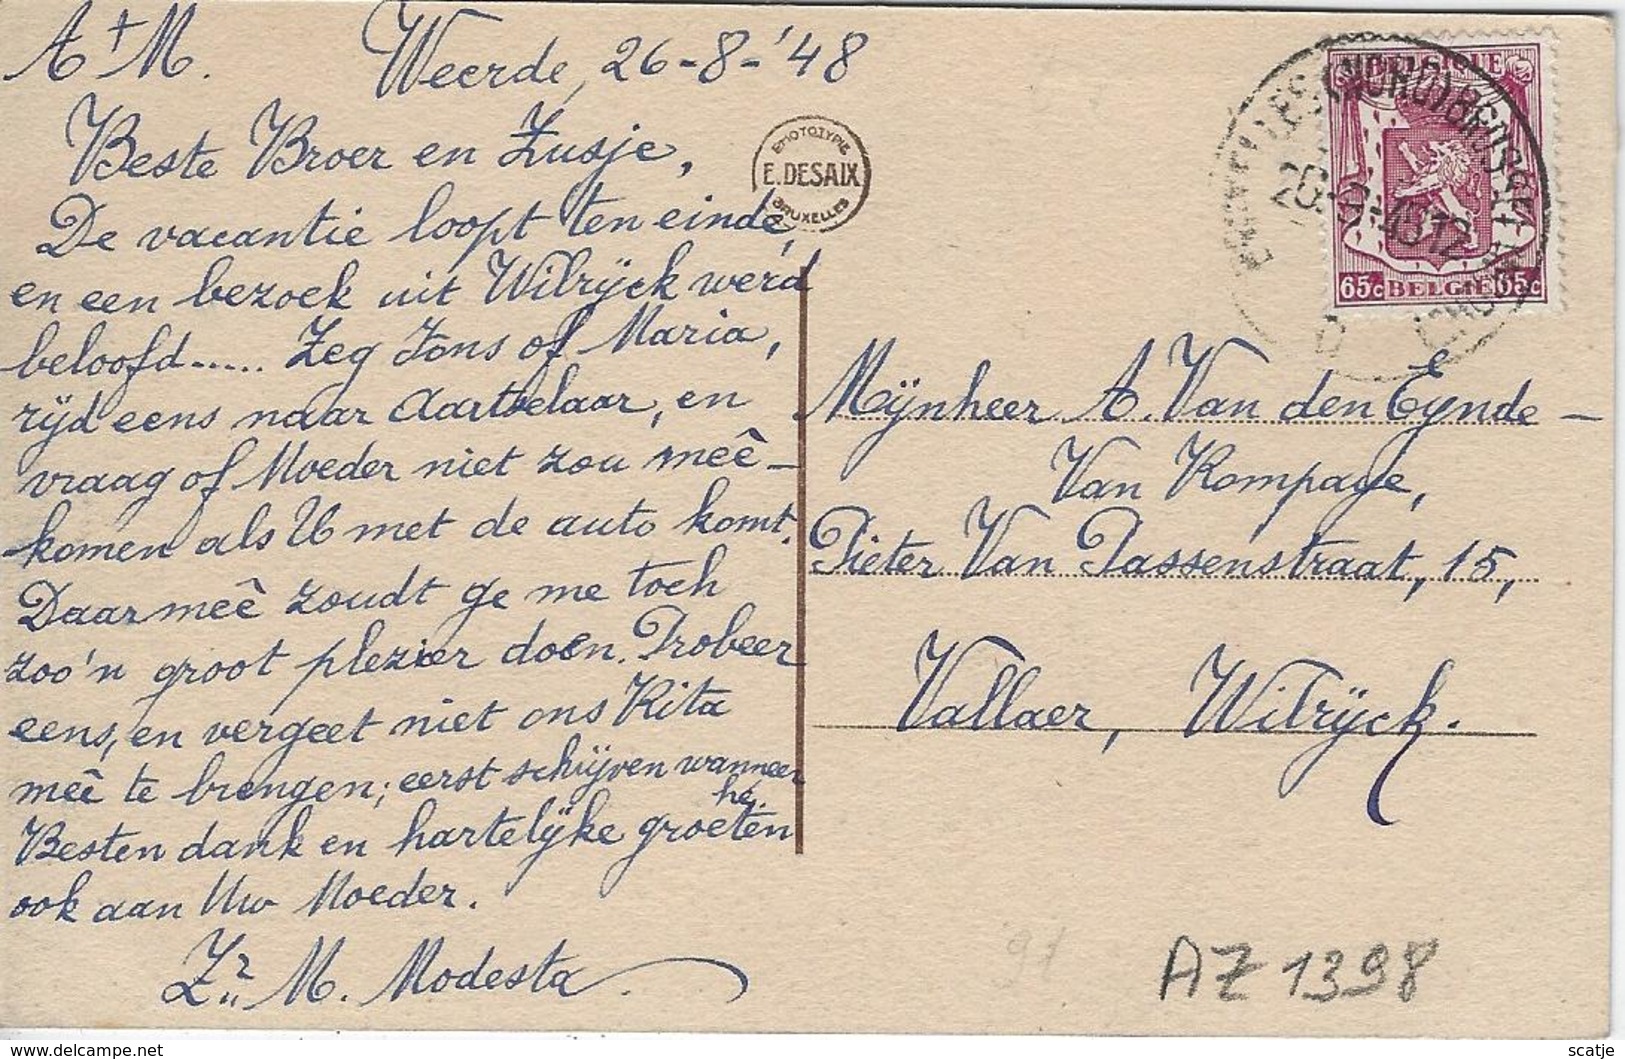 A + M. Weerde, 26-8-'48
Beste Broer en Zusje,
De vacantie loopt ten einde,
en een bezoek uit Wilrijck werd
beloofd...... Zeg Fons of Maria,
rijd eens naar Aartselaar, en
vraag of Moeder niet zou meê-
komen als U met de auto komt.
Daarmeê zoudt ge me toch
zoo'n groot plezier doen. Probeer
eens, en vergeet niet ons Rita
meê te brengen; eerst schrijven wanneer
hé.
Besten dank en hartelijke groeten
ook aan Uw Moeder.
Zr. M. Modesta
EMOTOTYPIE
E. DESAIX
BRUXELLES
BELGIQUE
65c BELGIE 65c
Mijnheer A. Van den Eynde-
Van Kompaye,
Pieter Van Passenstraat, 15,
Vallaer, Wilrijck.
AZ 1398
www.delcampe.net
scatje